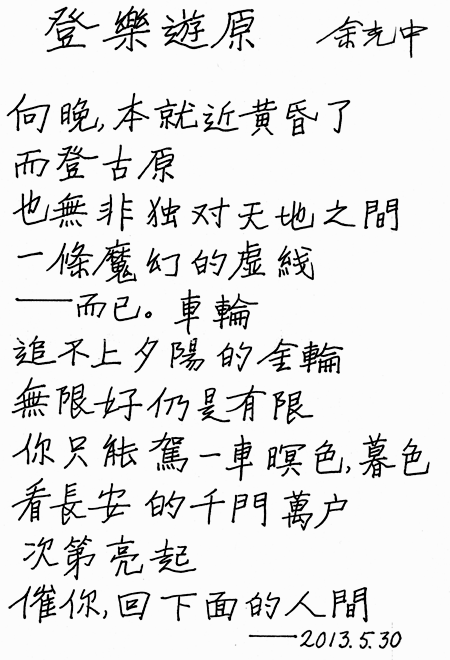 登樂遊原 余光中
向晚,本就近黃昏了
而登古原
也無非独对天地之間
一條魔幻的虛綫
——而已。車輪
追不上夕陽的金輪
無限好仍是有限
你只能駕一車暝色,暮色
看長安的千門萬户
次第亮起
催你,回下面的人間
——2013.5.30